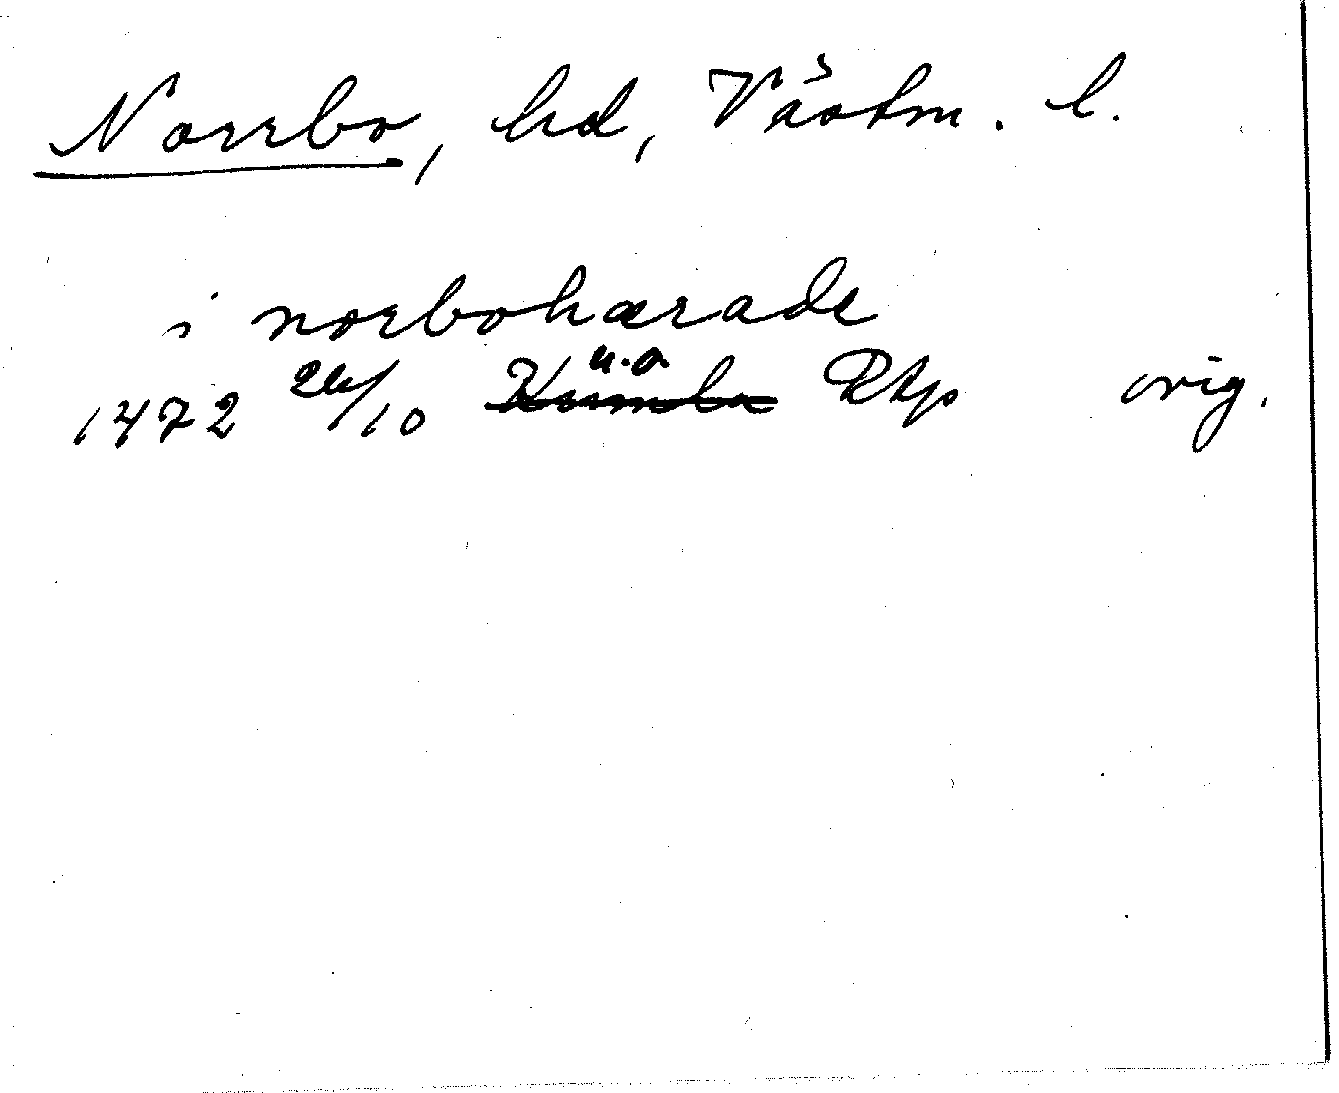 Norrbo, hd, Västm. l.
i norbohærade
1472 26/10 ~~Kumla~~ u.o. RAp orig.